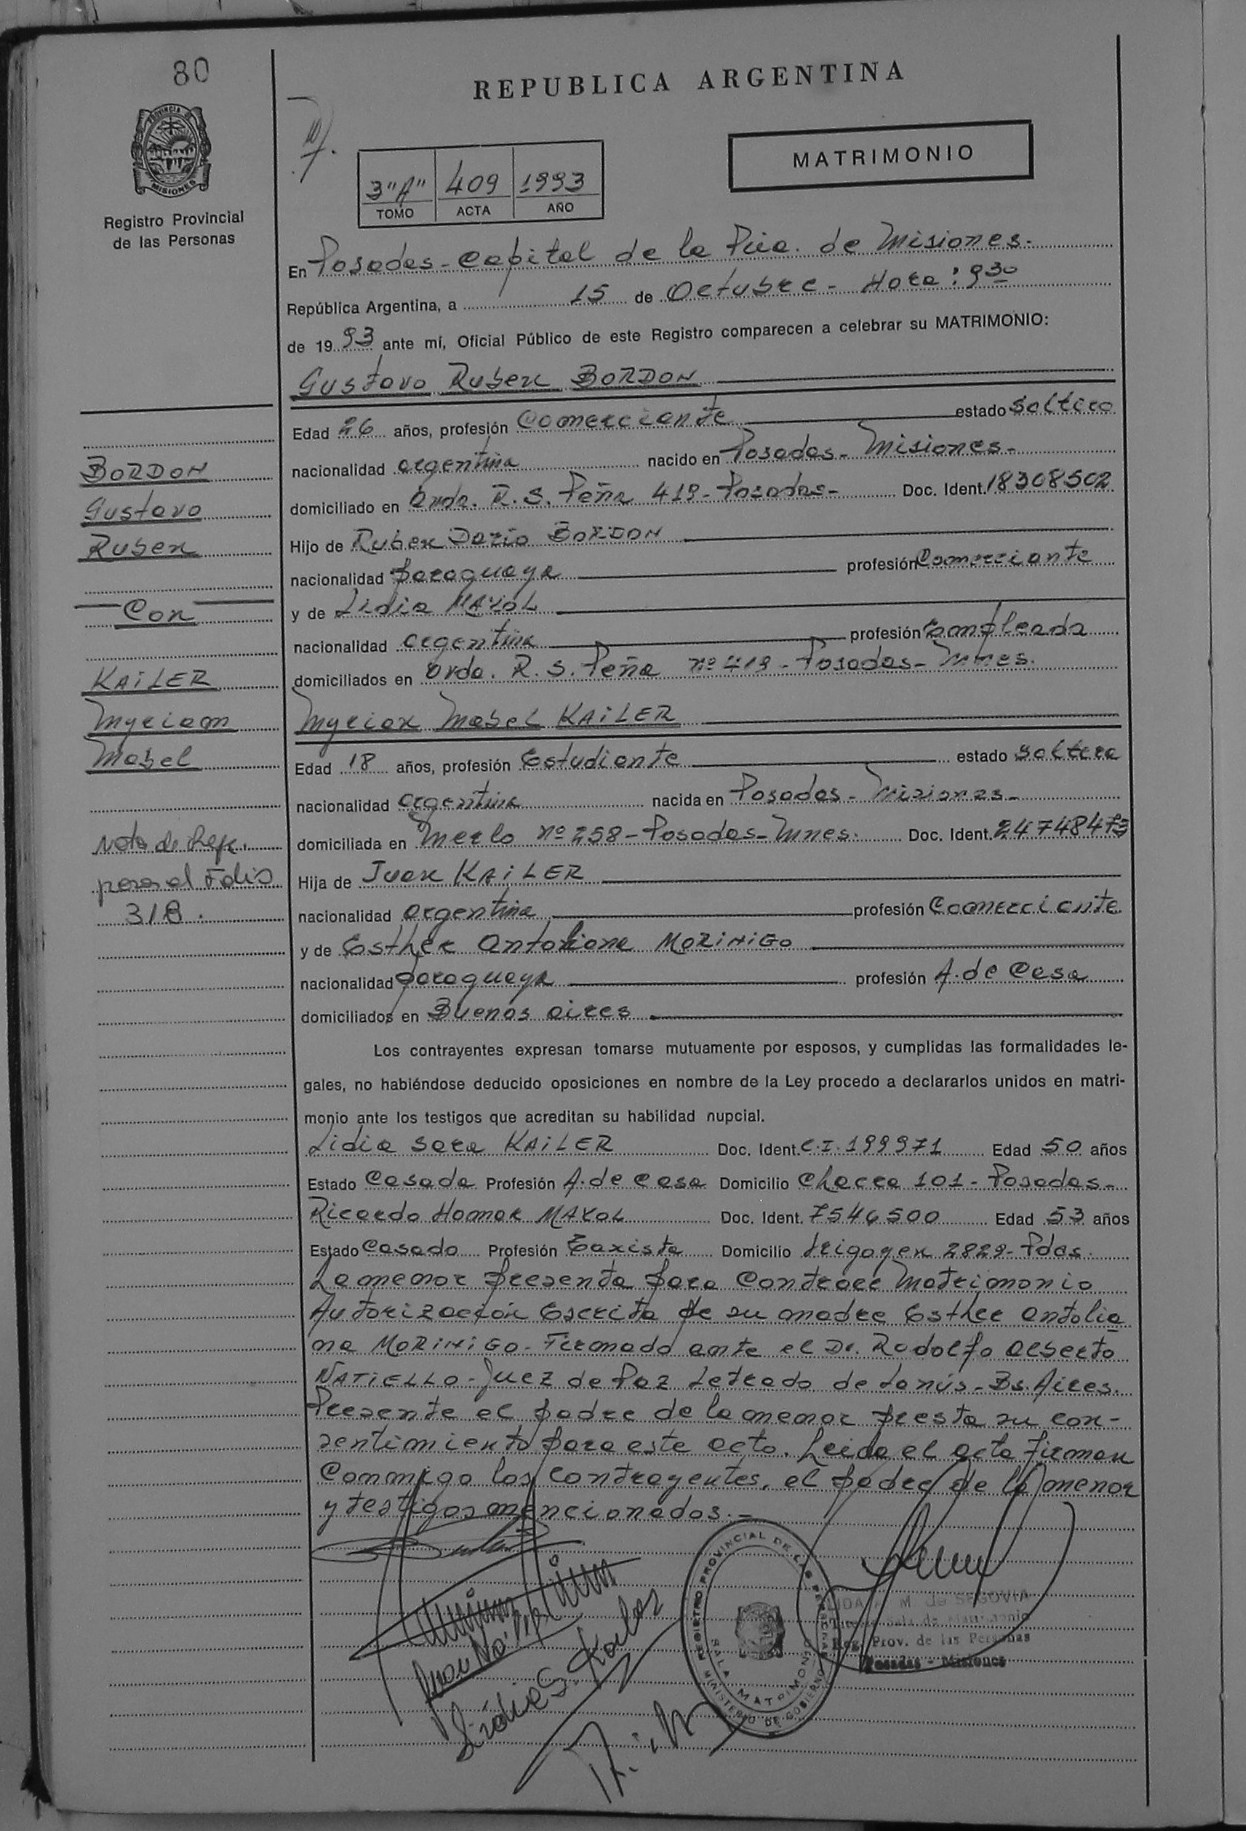 80
REPUBLICA ARGENTINA
MATRIMONIO
3"A" 409 1993
TOMO ACTA AÑO
PROVINCIA DE MISIONES
Registro Provincial
de las Personas
En Posadas - Capital de la Pcia. de Misiones.
República Argentina, a 15 de Octubre - Hora: 9 30
de 19 93 ante mí, Oficial Público de este Registro comparecen a celebrar su MATRIMONIO:
Gustavo Ruben BORDON
Edad 26 años, profesión Comerciante estado Soltero
nacionalidad argentina nacido en Posadas - Misiones -
domiciliado en Avda. R. S. Peña 419 - Posadas - Doc. Ident. 18308502
Hijo de Ruben Dario BORDON
nacionalidad paraguaya profesión Comerciante
y de Lidia MAYOL
nacionalidad argentina profesión Empleada
domiciliados en Avda. R. S. Peña nº 419 - Posadas - Mnes.
Myriam Mabel KAILER
Edad 18 años, profesión Estudiante estado Soltera
nacionalidad argentina nacida en Posadas - Misiones -
domiciliada en Merlo nº 258 - Posadas - Mnes. Doc. Ident. 24748473
Hija de Juan KAILER
nacionalidad argentina profesión Comerciante
y de Esther Antoliana MORINIGO
nacionalidad paraguaya profesión A. de Casa
domiciliados en Buenos Aires
Los contrayentes expresan tomarse mutuamente por esposos, y cumplidas las formalidades le-
gales, no habiéndose deducido oposiciones en nombre de la Ley procedo a declararlos unidos en matri-
monio ante los testigos que acreditan su habilidad nupcial.
Lidia Sara KAILER Doc. Ident. C.I. 199971 Edad 50 años
Estado Casada Profesión A. de Casa Domicilio Chacra 101 - Posadas -
Ricardo Homar MAYOL Doc. Ident. 7546500 Edad 53 años
Estado Casado Profesión Taxista Domicilio Irigoyen 2829 - Pdas.
La menor presenta para Contraer Matrimonio
Autorización Escrita de su madre Esther Antolia
na MORINIGO - Firmada ante el Dr. Rodolfo Alberto
NATIELLO - Juez de Paz Letrado de Lanús - Bs. Aires.
Presente el padre de la menor presta su con-
sentimiento para este acto. Leida el acta firman
Conmigo los contrayentes, el padre de la menor
y testigos mencionados. -
BORDON
Gustavo
Ruben
Con
KAILER
Myriam
Mabel
Nota de Refe.
pasa al Folio
318.
Lidia S. Kailer
REGISTRO PROVINCIAL DE LAS PERSONAS
SALA MATRIMONIO
MINISTERIO DE GOBIERNO
M. de SEGOVIA
Sala de Matrimonio
Reg. Prov. de las Personas
Posadas - Misiones